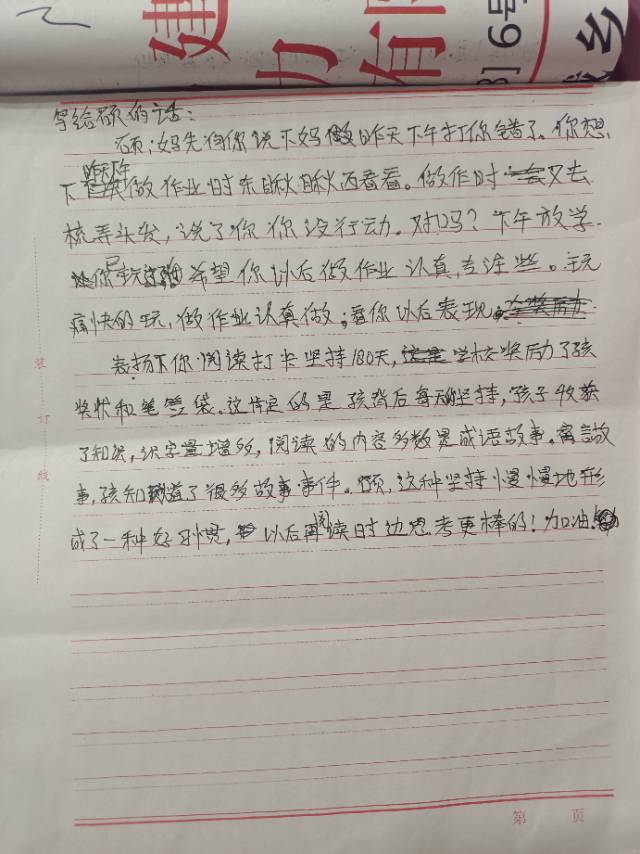 建
力
有限
号6号
城乡
写给硕的话：
硕：妈先向你说下妈做昨天下午打你错了。你想，
昨天下午
下做作业时东瞅瞅西看看。做作时又去
梳弄头发，说了你你没行动。对吗？下午放学
你玩希望你以后做作业认真，专注些。玩
痛快的玩，做作业认真做；看你以后表现。
表扬下你阅读打卡坚持180天，学校奖励了孩
奖状和笔袋。这肯定的是孩背后每天的坚持，孩子收获
了知识，识字量增多，阅读的内容多数是成语故事。寓言故
事，孩知道了很多故事事件。硕，这种坚持慢慢地形
成了一种好习惯，以后再阅读时边思考更棒的！加油！
装
订
线
第 页